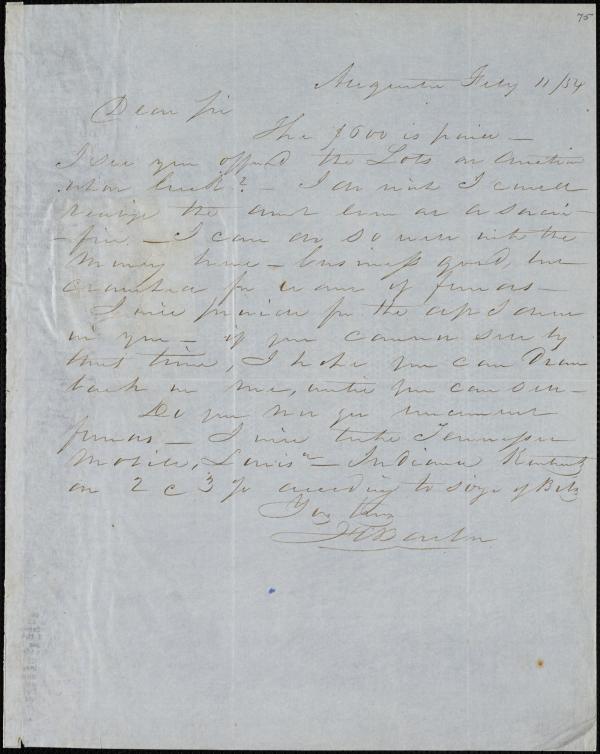 75
Augusta Feby 11/54
Dear Sir
The $600 is paid —
I see you offered the Lots at Auction
what luck? — I do wish I could
realize the amt even at a sacri-
-fice — I can do so well with the
money here — business good, but
cramped for want of funds —
I will provide for the dft I drew
on you — if you cannot sell by
that time, I hope you can draw
back on me, until you can sell —
Do you not get uncurrent
funds — I will take Tennessee
Mobile, Louis<sup>a</sup> — Indiana Kentucky
at 2 @ 3 % according to size of Bills
Yrs truly